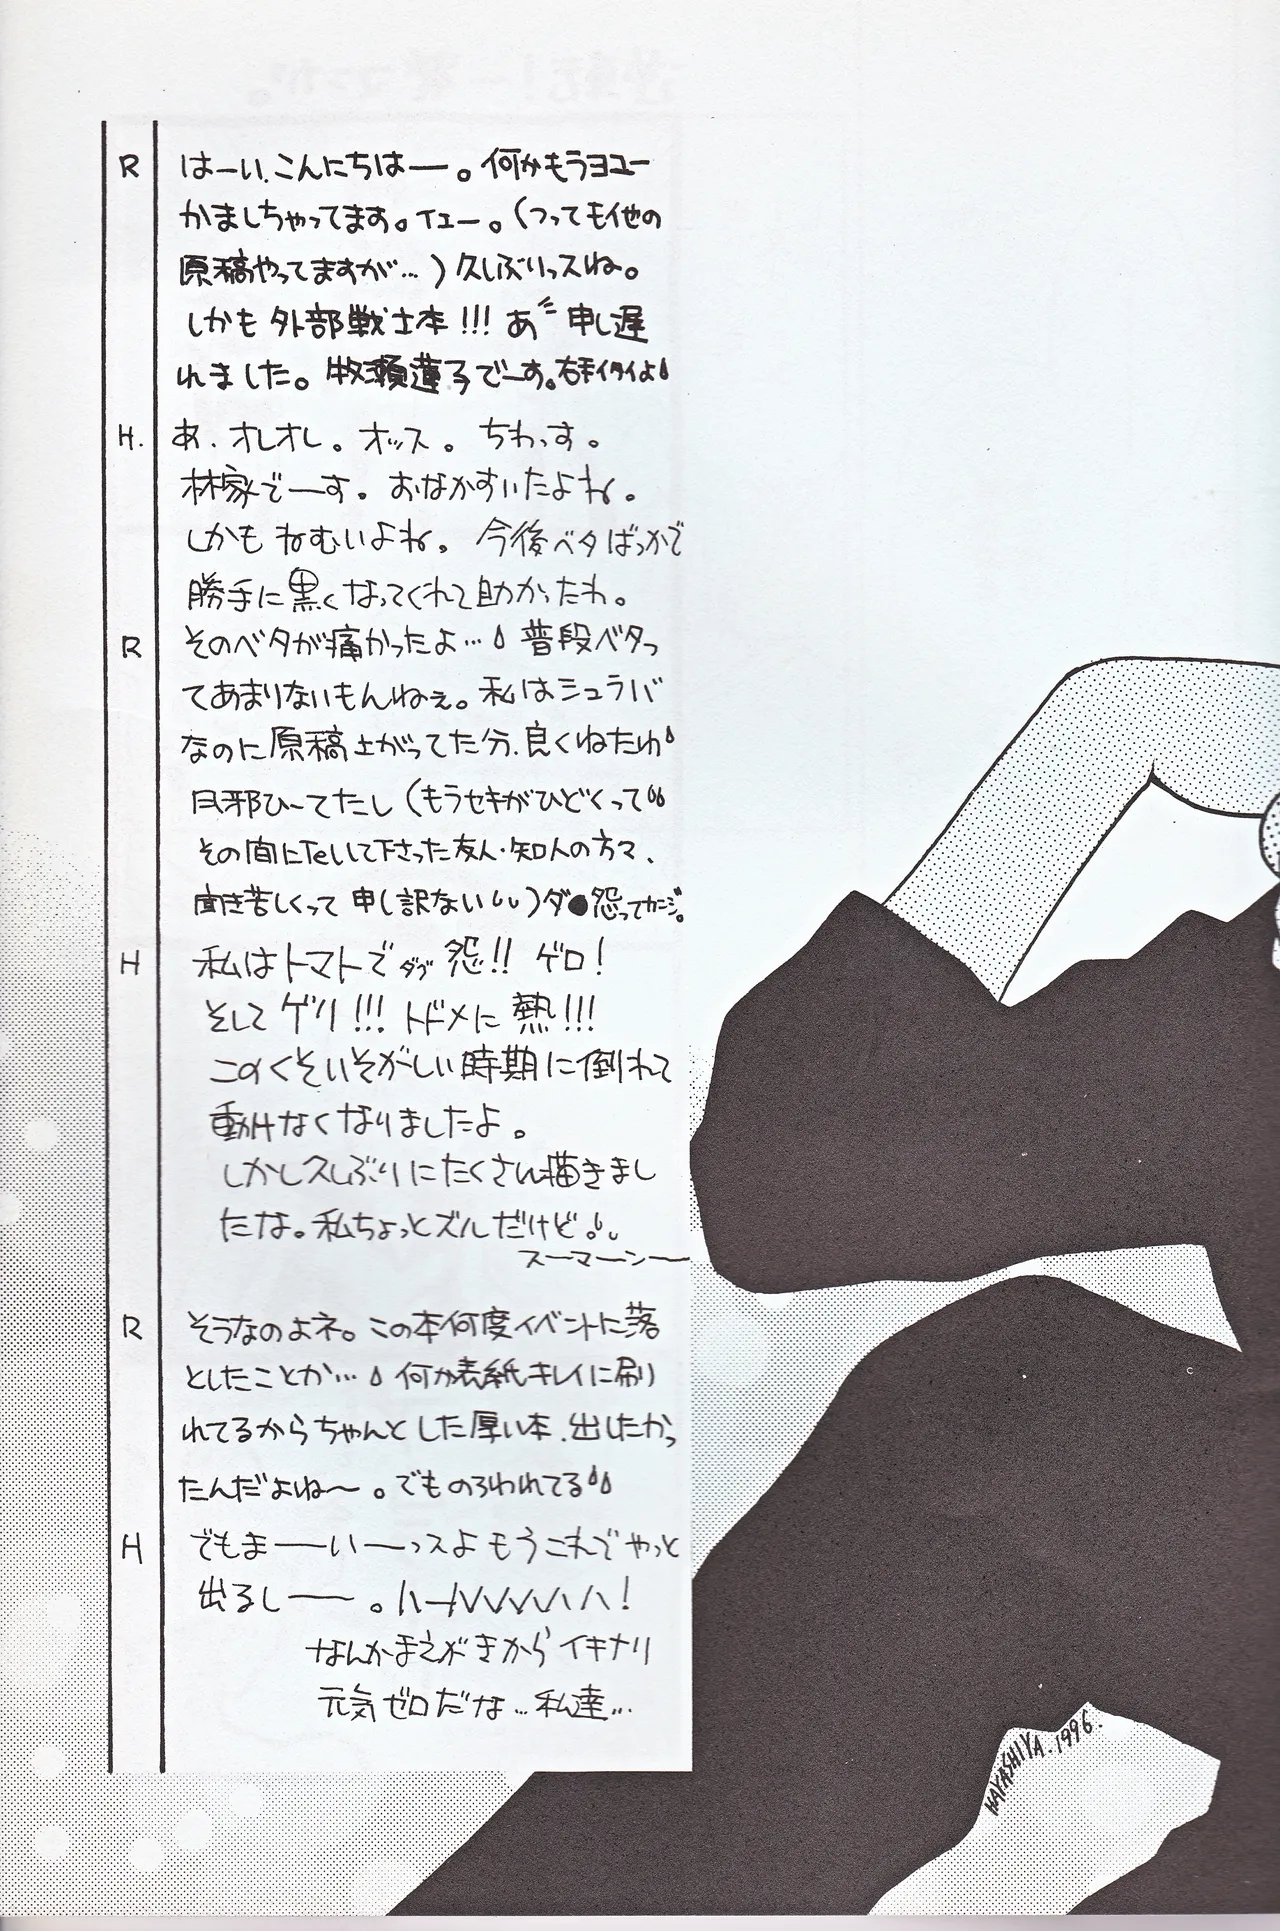 R はーい、こんにちはー。何かもうヨユー
かましちゃってます。イエー。(つっても他の
原稿やってますが…)久しぶりっスね。
しかも外部戦士本!!!あ゛申し遅
れました。牧瀬蓮子でーす。右手イタイよ
H. あ、オレオレ。オッス。ちわっす。
林家でーす。おなかすいたよね。
しかもねむいよね。今後ベタばっかで
勝手に黒くなってくれて助かったわ。
R そのベタが痛かったよ…普段ベタっ
てあまりないもんねぇ。私はシュラバ
なのに原稿上がってた分、良くねたわ
風邪ひーてたし(もうセキがひどくって
その間にTelいて下さった友人・知人の方々、
聞き苦しくって申し訳ない)ダ●怨ってカンジ。
H 私はトマトでダブ怨!!ゲロ!
そしてゲリ!!!トドメに熱!!!
このくそいそがしい時期に倒れて
動けなくなりましたよ。
しかし久しぶりにたくさん描きまし
たな。私ちょっとズルだけど。
スーマーンー
R そうなのよネ。この本何度イベントに落
としたことか…何か表紙キレイに刷
れてるからちゃんとした厚い本、出したかっ
たんだよね〜。でものろわれてる
H でもまーいーっスよもうこれでやっと
出るしー。
なんかまえがきからイキナリ
元気ゼロだな…私達…
HAYASHIYA.1996.